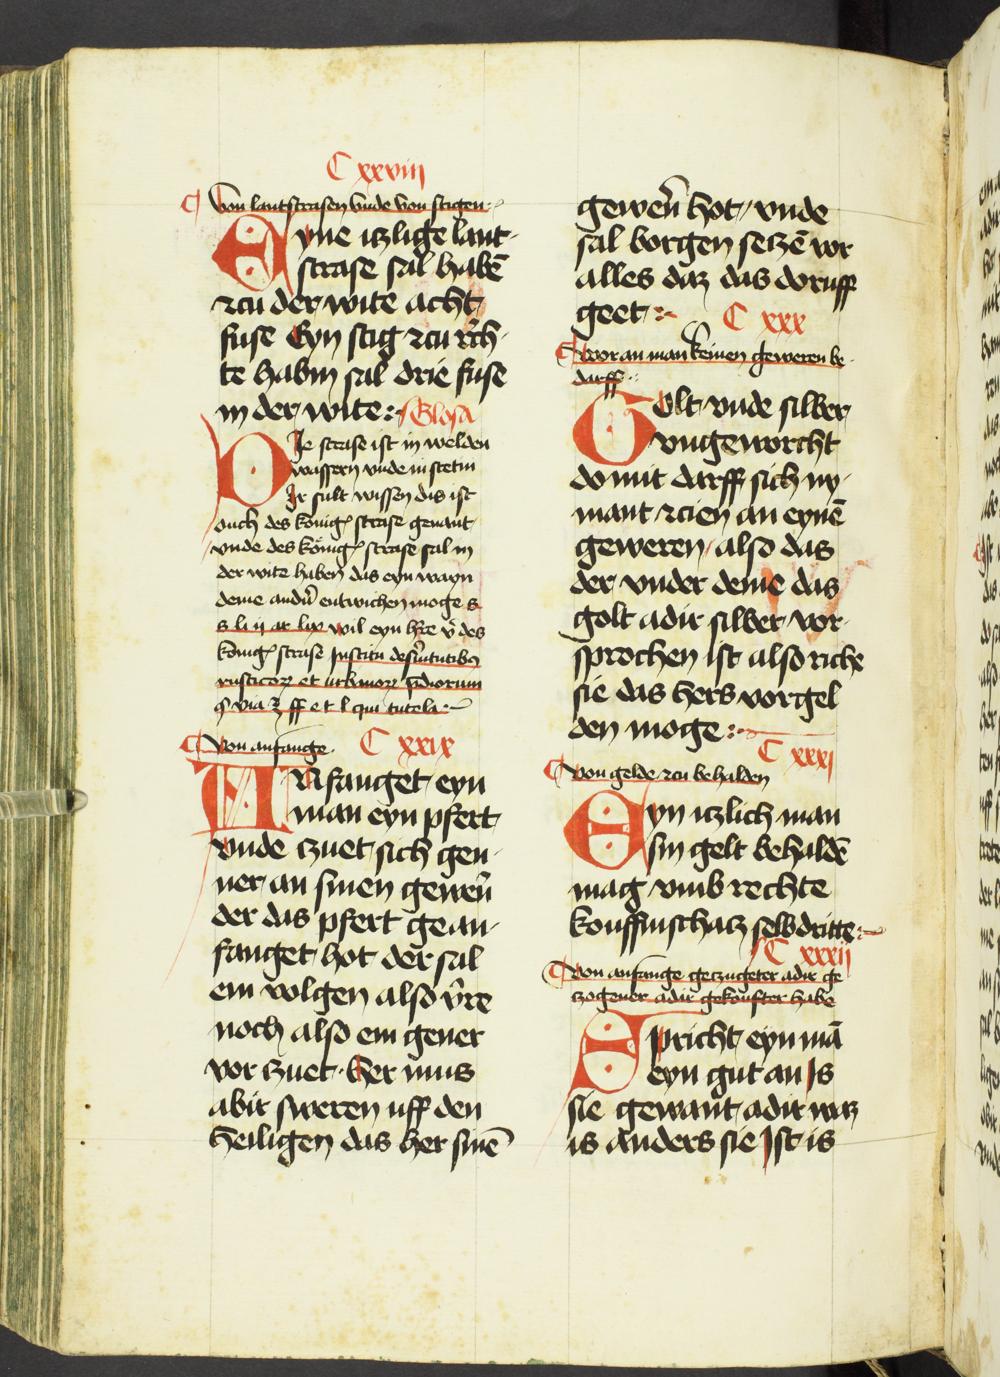 C xxviij
Von lantstrasen vnde von stigen
Eyne iczlige lant-
strase sal habē
zcu der wite acht
fuse Eyn stig zcu rech-
te habin sal drie fuse
in der wite Glosa
Die strase ist in welden
wassern vnde in stetin
Ir sult wissen dis ist
ouch des konigꝭ strase genant
vnde des konigꝭ strase sal in
der wite haben das eyn wayn
deme andn̄ entwichen moge s
wil eyn h're v̄ des
konigꝭ strase
rusticoꝝ et urbanoꝝ p̄diorum
via et l qui tutela
Von anfange C xxix
Anfanget eyn
man eyn pfert
vnde czuet sich gen-
ner an sinen gewern̄
der das pfert gean-
fanget hot der sal
em volgen also v̄re
noch also em gener
vor czuet Her mus
abir sweren uff den
Heiligen das her sinē
gewern̄ hot vnde
sal borgen seczē vor
alles daz das doruff
geet C xxx
Woran man keinen geweren be-
darff
Golt vnde silber
vngeworcht
do mit darff sich ny-
mant zcien an eynē
geweren also das
der vnder deme das
golt adir silber vor-
sprochen ist also riche
sie das hers vorgel
den moge
C xxxi
Von gelde zcu behalden
Eyn iczlich man
sin gelt behaldē
mag vmb rechte
kouffinschacz selbdritte
C xxxij
Von anfange geczugeter adir ge
czogener adir gekoufter habe
Spricht eyn mā
eyn gut an Is
sie gewant adir waz
is anders sie Ist is